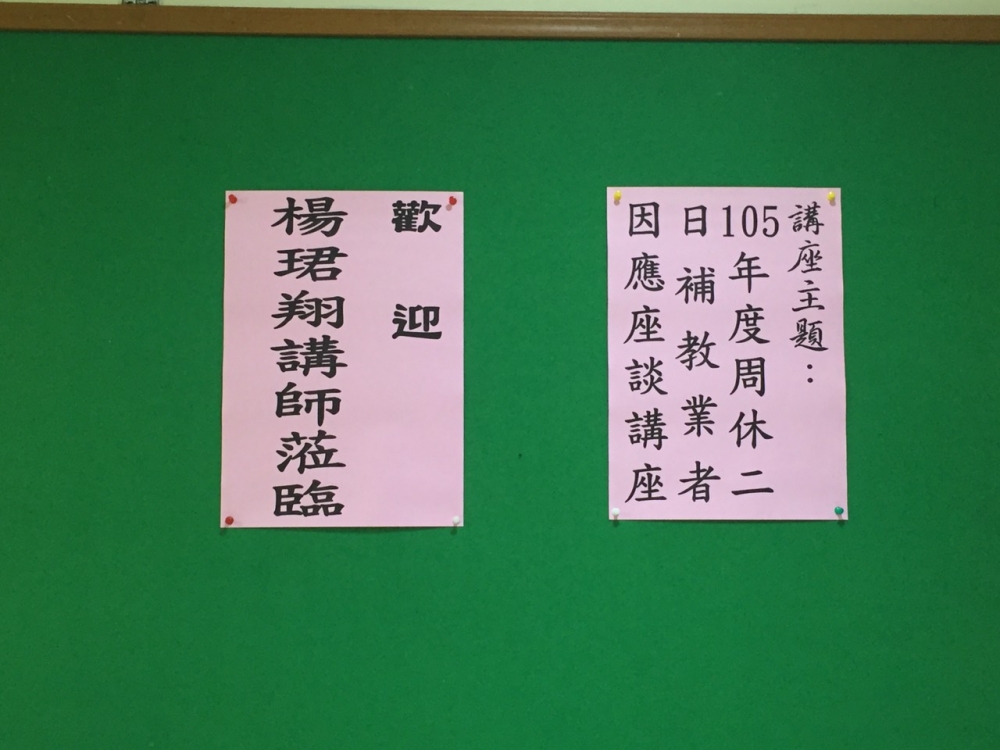 講座主題：
105年度周休二
日補教業者
因應座談講座
歡迎
楊珺翔講師蒞臨